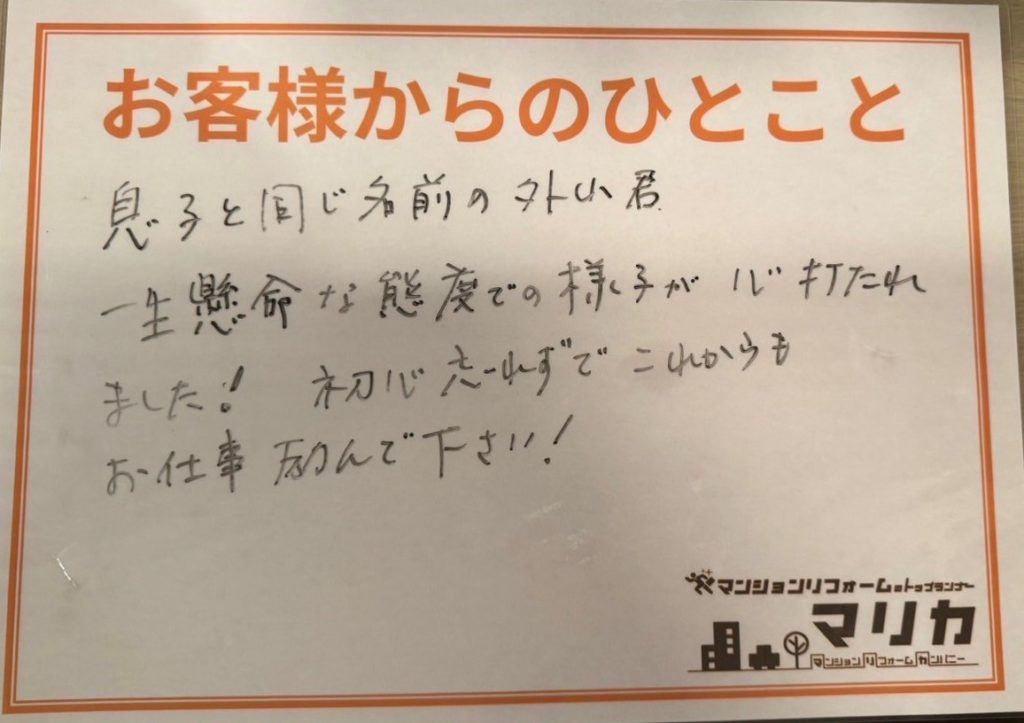 お客様からのひとこと
息子と同じ名前の外山君
一生懸命な態度での様子が心打たれ
ました! 初心忘れずでこれからも
お仕事励んで下さい!
マンションリフォームのトップランナー
マリカ
マンションリフォームカンパニー